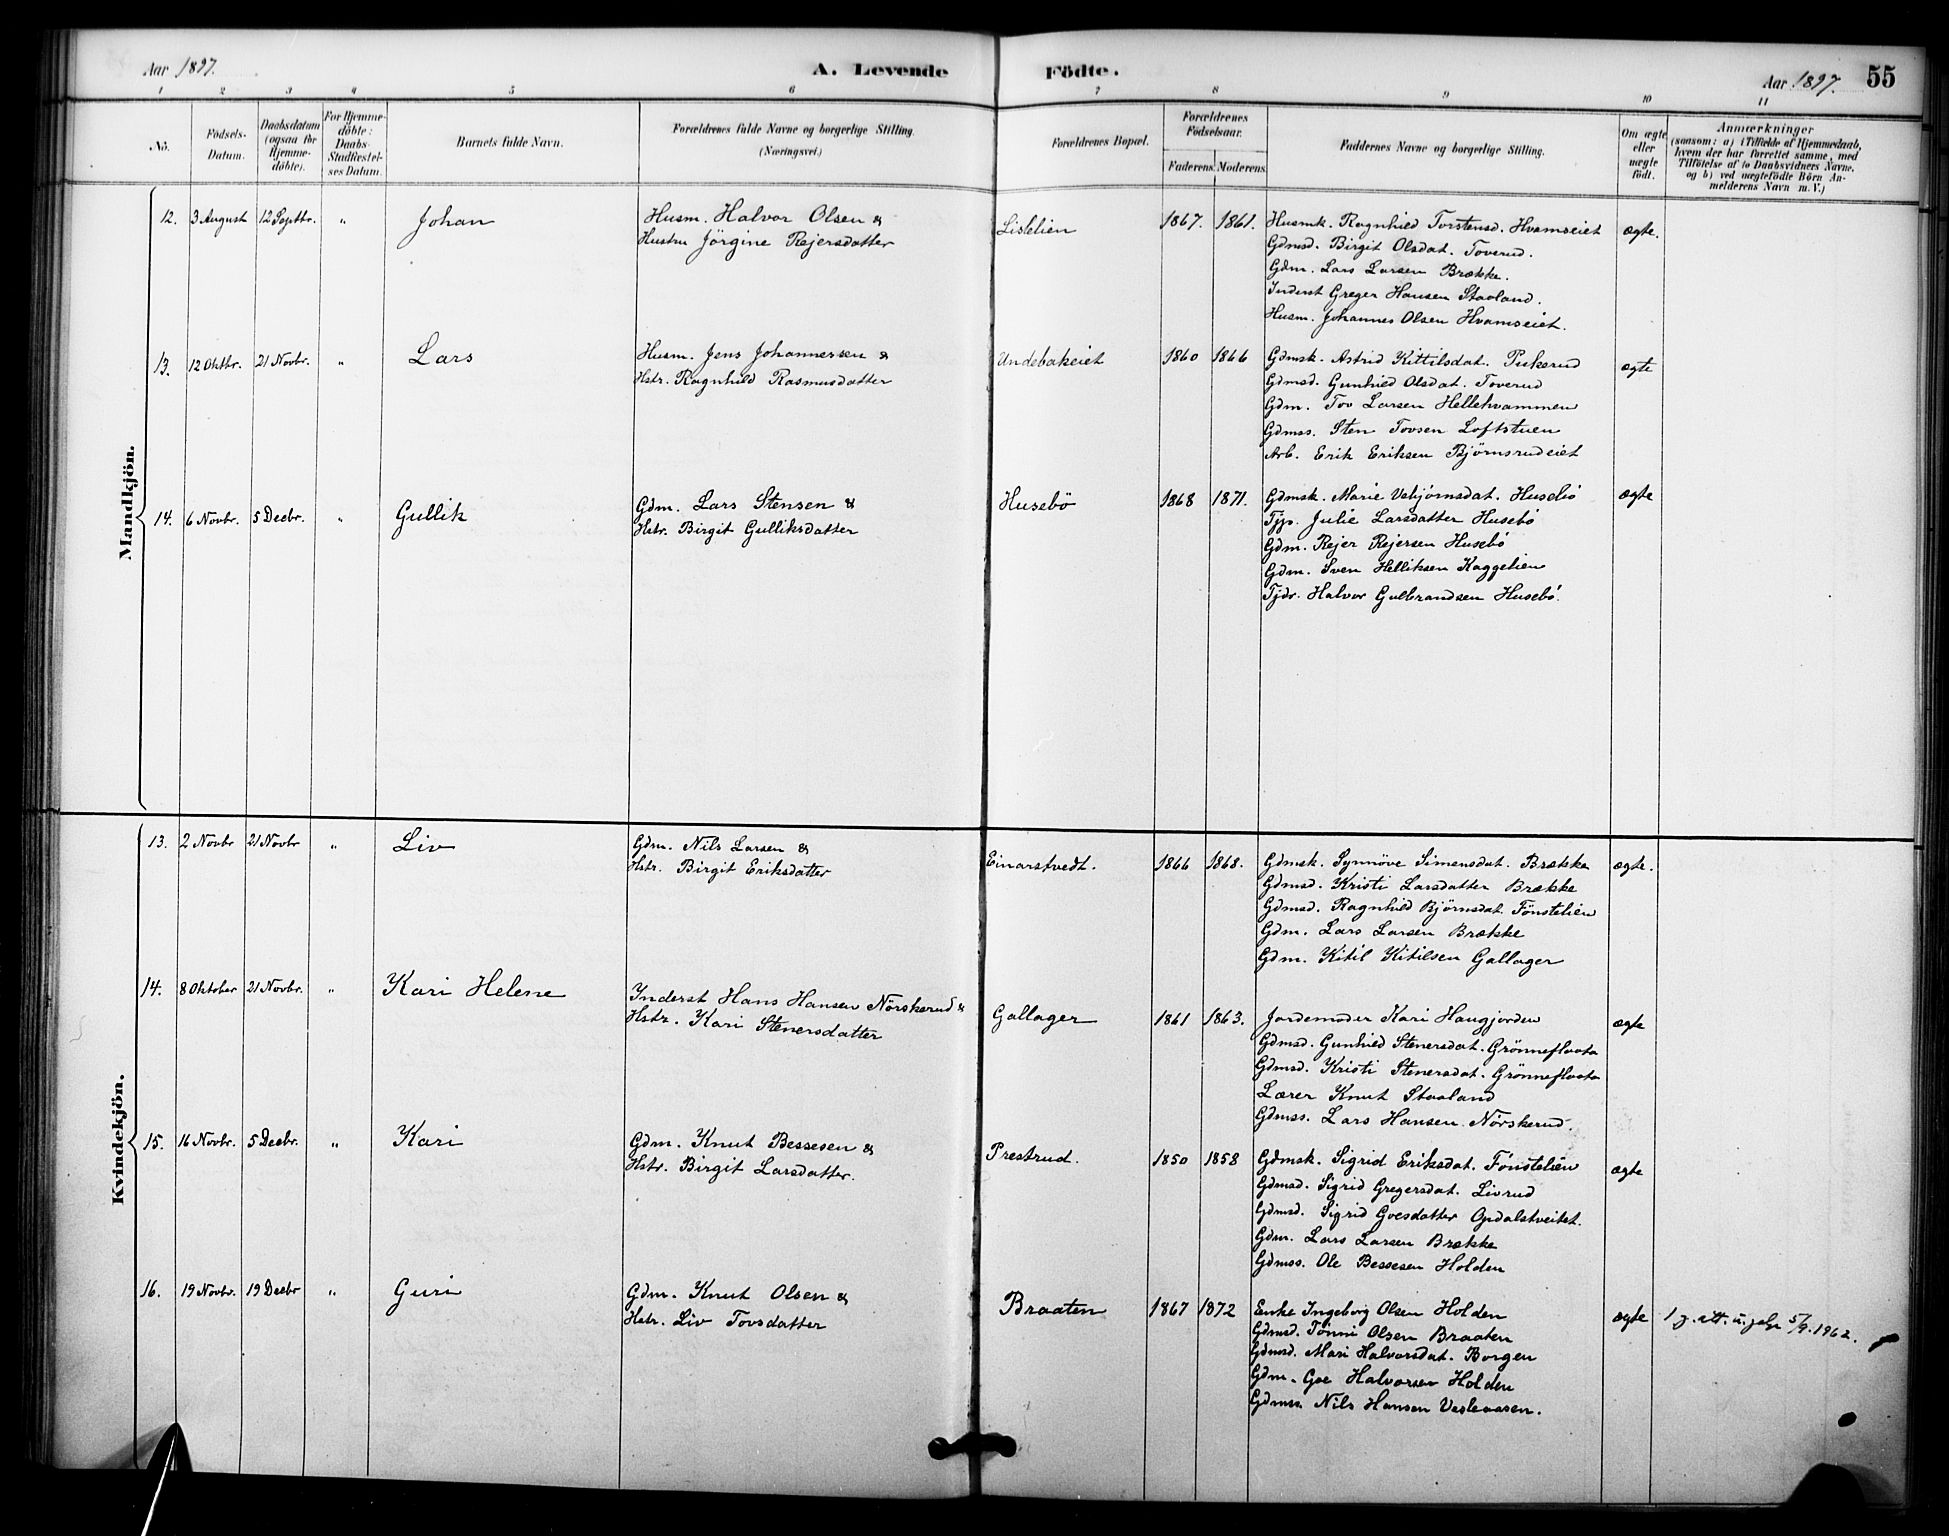 Aar 1897. A. Levende Födte. Aar 1897. 55
1 2 3 4 5 6 7 8 9 10 11
Nö.
Födsels-Datum.
Daabsdatum (ogsaa for Hjemme-döbte).
For Hjemme-döbte: Daabs-Stadfæstel-ses Datum.
Barnets fulde Navn.
Forældrenes fulde Navne og borgerlige Stilling.
(Næringsvei.)
Forældrenes Bopæl.
Forældrenes Födselsaar.
Faderens. Moderens.
Faddernes Navne og borgerlige Stilling.
Om ægte eller uægte födt.
Anmærkninger
(saasom: a) i Tilfælde af Hjemmedaab,
hvem der har forrettet samme, med
Tilföielse af to Daabsvidners Navne,
og b) ved uægtefödte Börn An-
melderens Navn m. V.)
Mandkjön.
12. 3 August 12 Septbr. " Johan Husm. Halvor Olsen & Lislelien 1867. 1861. Husmk. Ragnhild Torstensd. Hvamseiet ægte.
Hustru Jörgine Rejersdatter Gdmsd. Birgit Olsdat. Toverud.
Gdm. Lars Larsen Brække.
Inderst Greger Hansen Staaland.
Husm. Johannes Olsen Hvamseiet.
13. 12 Oktbr. 21 Novbr. " Lars Husm. Jens Johannersen & Undebakeiet 1860 1866 Gdmsk. Astrid Kittilsdat. Pukerud ægte
Hstr. Ragnhild Rasmusdatter Gdmsd. Gunhild Olsdat. Toverud
Gdm. Tov Larsen Hellehvammen
Gdmss. Sten Tovsen Loftstuen
Arb. Erik Eriksen Bjørnsrudeiet
14. 6 Novbr. 5 Decbr. " Gullik Gdm. Lars Stensen & Husebö 1868 1871. Gdmsk. Marie Vebjørnsdat. Husebö ægte
Hstr. Birgit Gulliksdatter Tjp. Julie Larsdatter Husebö
Gdm. Rejer Rejersen Husebö
Gdm. Sven Helliksen Kaggelien
Tjdr. Halvor Gulbrandsen Husebö.
Kvindekjön.
13. 2 Novbr 21 Novbr " Liv Gdm. Nils Larsen & Einarstvedt. 1866 1868. Gdmsk. Synnöve Simensdat. Brække ægte.
Hstr. Birgit Eriksdatter Gdmsd. Kristi Larsdatter Brække
Gdmsd. Ragnhild Bjørnsdat. Fönstelien
Gdm. Lars Larsen Brække
Gdm. Kitil Kitilsen Gallager
14. 8 Oktober 21 Novbr. " Kari Helene Inderst Hans Hansen Nörskerud & Gallager 1861 1863. Jordemoder Kari Haugjorden ægte
Hstr. Kari Stenersdatter Gdmsd. Gunhild Stenersdat. Grönneflaata
Gdmsd. Kristi Stenersdat. Grönneflaata
Lærer Knut Staaland
Gdmss. Lars Hansen Nörskerud.
15. 16 Novbr. 5 Decbr. " Kari Gdm. Knut Bessesen & Prestrud. 1850 1858 Gdmsk. Sigrid Eriksdat. Fönstelien ægte
Hstr. Birgit Larsdatter. Gdmsd. Sigrid Gregersdat. Livrud
Gdmsd. Sigrid Goesdatter Opdalstveitet.
Gdm. Lars Larsen Brække
Gdmss. Ole Bessesen Holden
16. 19 Novbr. 19 Decbr " Guri Gdm. Knut Olsen & Braaten 1867 1872 Enke Ingeborg Olsen Holden ægte 1 g. att. u. 5/9.1962.
Hstr. Liv Tovsdatter Gdmsd. Tönni Olsen Braaten
Gdmsd. Mari Halvorsdat. Borgen
Gdm. Goe Halvorsen Holden
Gdmss. Nils Hansen Vesleaasen.